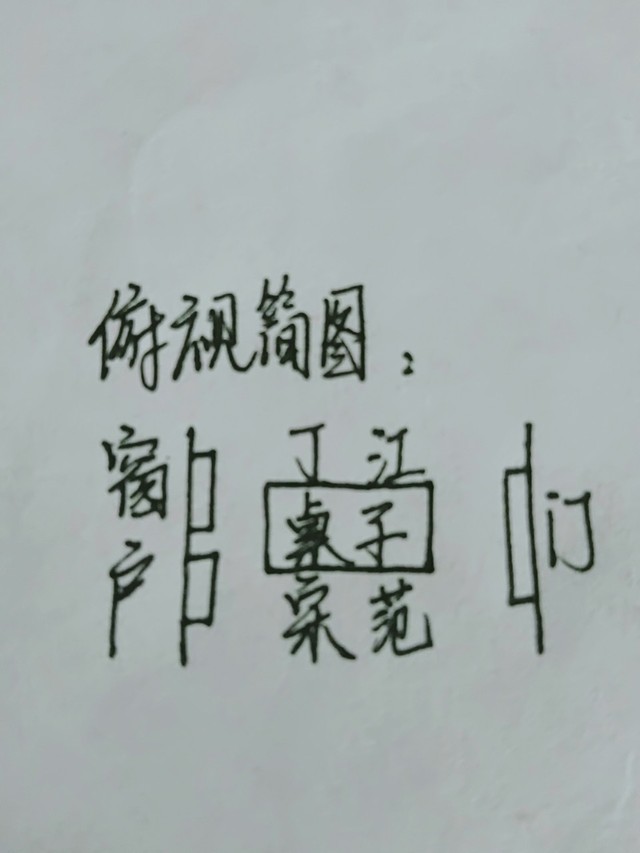 俯视简图：
窗户
丁 江
桌子
宋 范
门